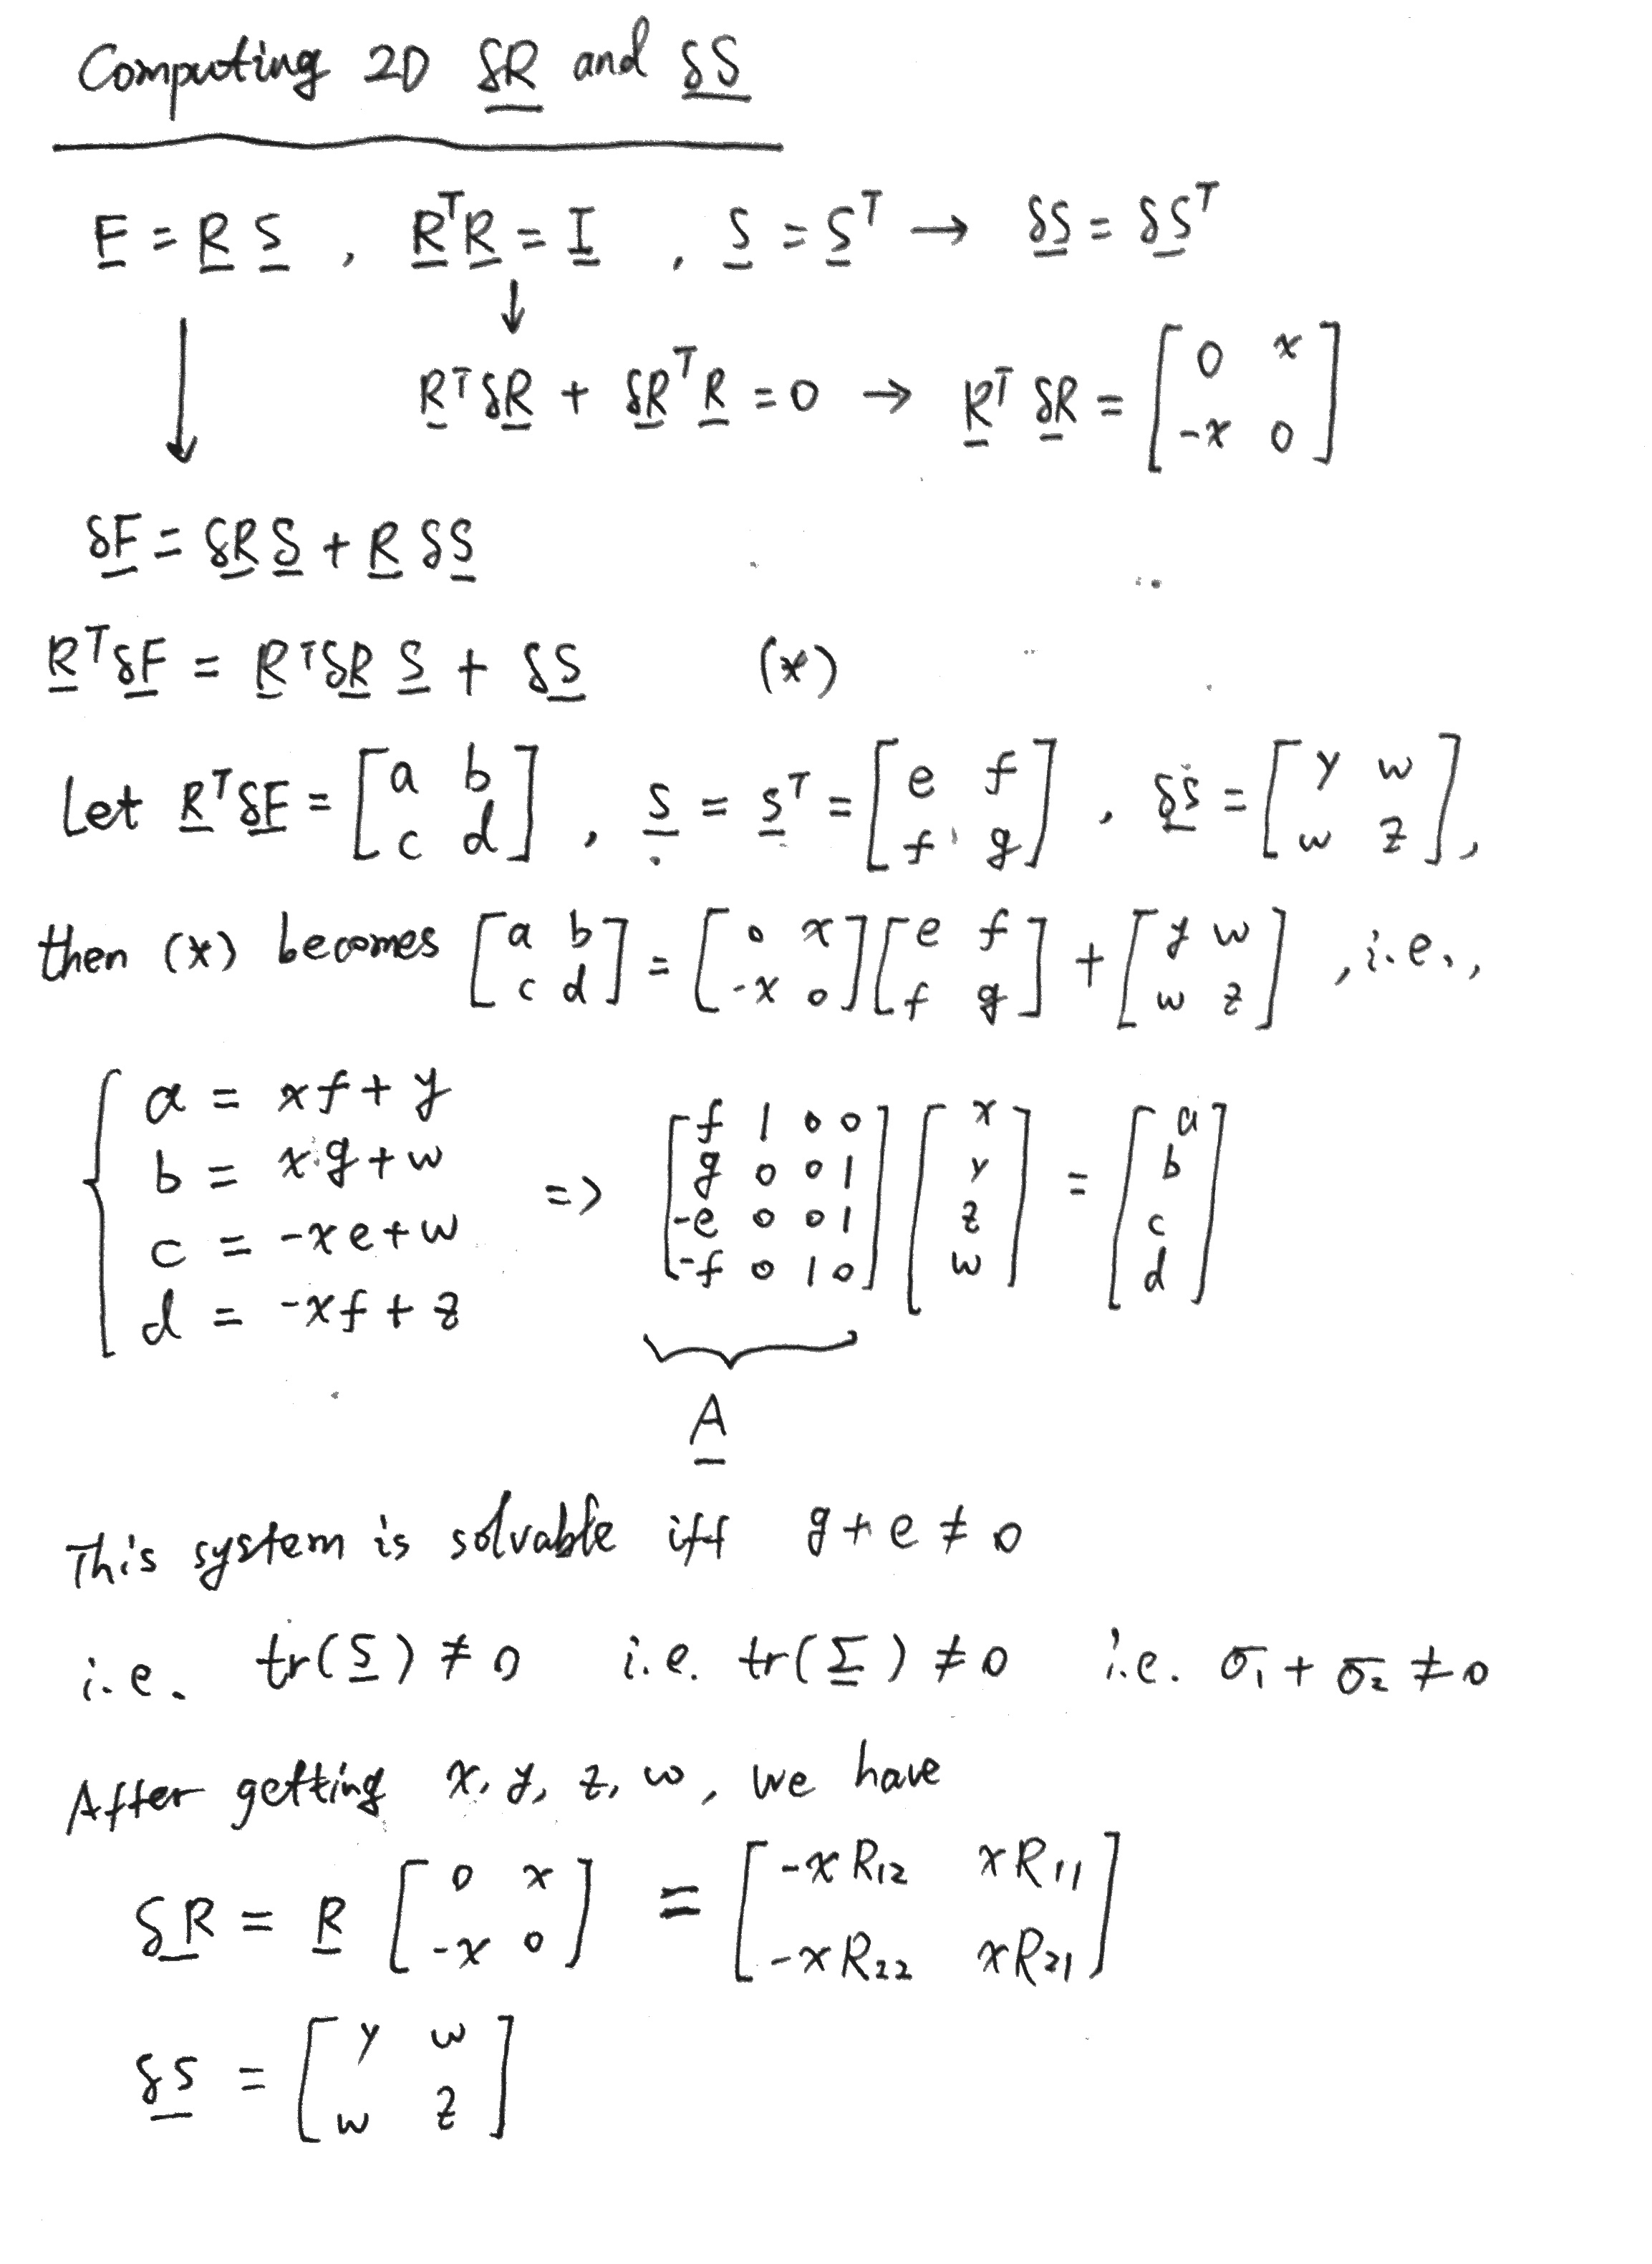 Computing 2D δR and δS
F = R S , RᵀR = I , S = Sᵀ → δS = δSᵀ
↓ ↓
RᵀδR + δRᵀR = 0 → Rᵀ δR = [0 x; -x 0]
δF = δR S + R δS
RᵀδF = RᵀδR S + δS (*)
Let RᵀδF = [a b; c d] , S = Sᵀ = [e f; f g] , δS = [y w; w z],
then (*) becomes [a b; c d] = [0 x; -x 0] [e f; f g] + [y w; w z] , i.e.,
{ a = xf + y
b = xg + w
c = -xe + w
d = -xf + z
=> [f 1 0 0; g 0 0 1; -e 0 0 1; -f 0 1 0] [x; y; z; w] = [a; b; c; d]
A
This system is solvable iff g + e ≠ 0
i.e. tr(S) ≠ 0 i.e. tr(Σ) ≠ 0 i.e. σ₁ + σ₂ ≠ 0
After getting x, y, z, w, we have
δR = R [0 x; -x 0] = [-xR₁₂ xR₁₁; -xR₂₂ xR₂₁]
δS = [y w; w z]